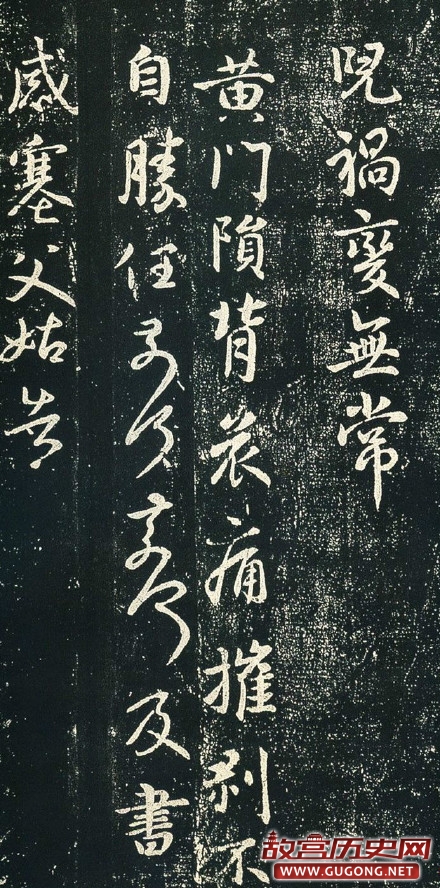 禍變無常
黄門隕背哀痛摧剥不
自勝任奈何奈何及書
感塞父姑告
故宫历史网
WWW.GUGONG.NET